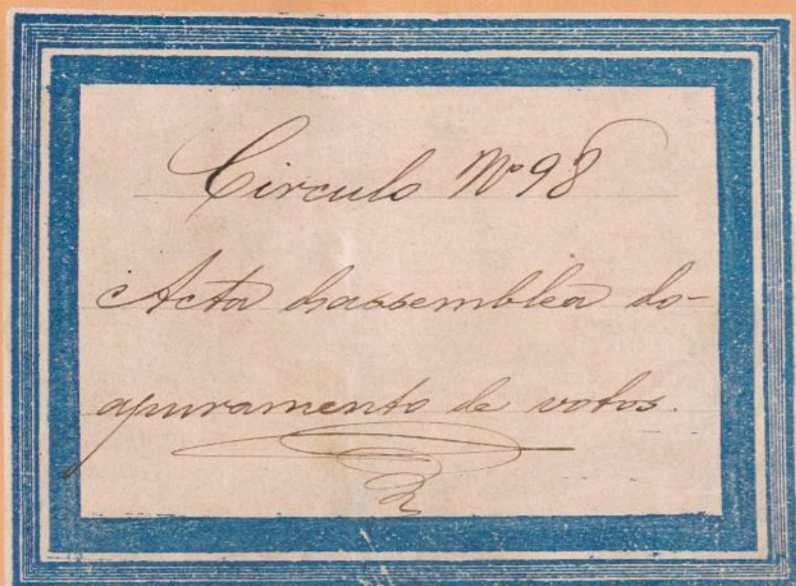 Circulo Nº 98
Acta da assemblea do
apuramento de votos.